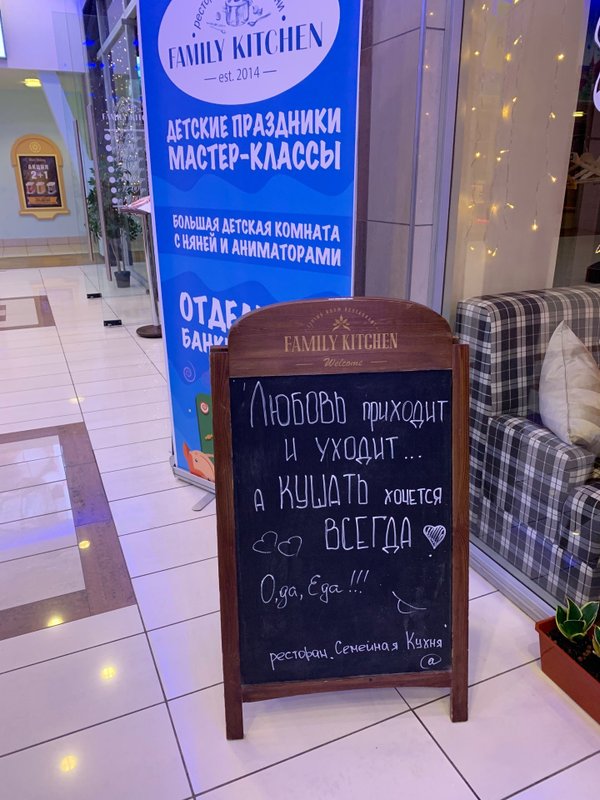 FAMILY KITCHEN
est. 2014
ДЕТСКИЕ ПРАЗДНИКИ
МАСТЕР-КЛАССЫ
БОЛЬШАЯ ДЕТСКАЯ КОМНАТА
С НЯНЕЙ И АНИМАТОРАМИ
АКЦИЯ
2+1
FAMILY KITCHEN
Welcome
ЛЮБОВЬ приходит
и уходит...
а КУШАТЬ хочется
ВСЕГДА
О, да, Еда!!!
ресторан. Семейная Кухня